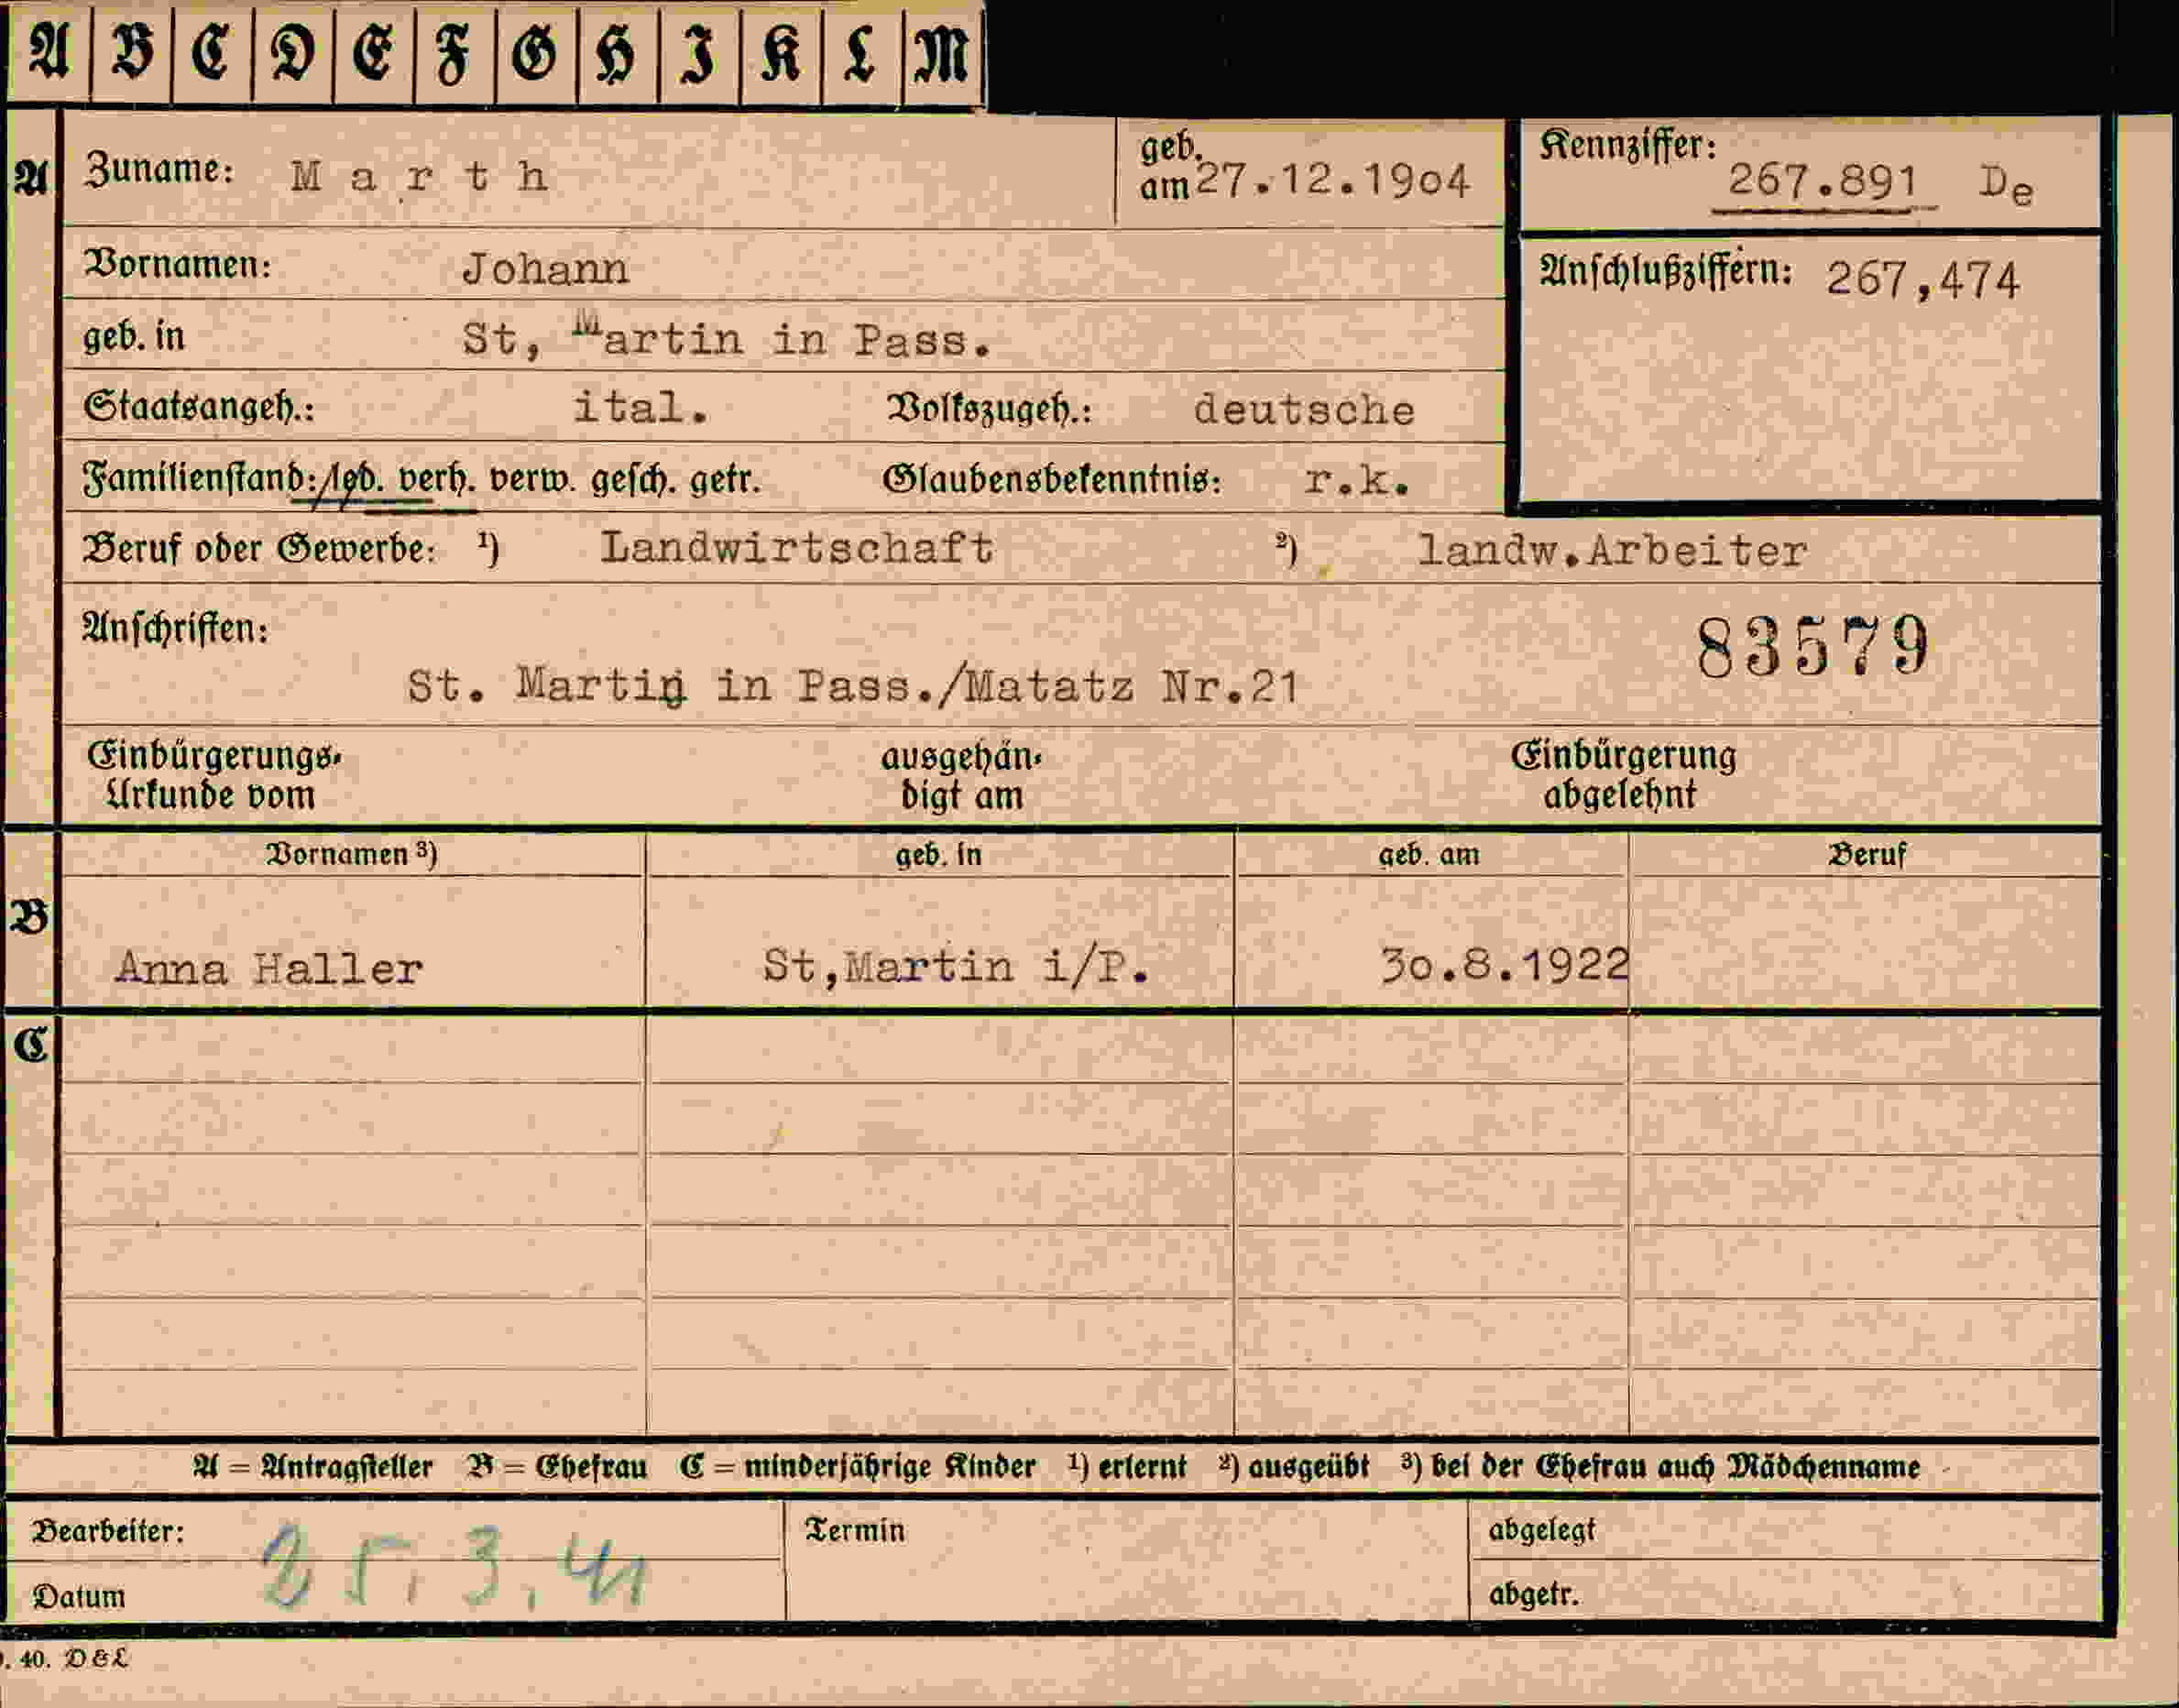 A B C D E F G H I K L M
A Zuname: Marth geb. am 27.12.1904 Kennziffer: 267.891 De
Vornamen: Johann Anschlußziffern: 267,474
geb. in St, Martin in Pass.
Staatsangeh.: ital. Volkszugeh.: deutsche
Familienstand: led. verh. verw. gesch. getr. Glaubensbekenntnis: r.k.
Beruf oder Gewerbe: 1) Landwirtschaft 2) landw.Arbeiter
Anschriften: 83579
St. Martin in Pass./Matatz Nr.21
Einbürgerungs- ausgehän- Einbürgerung
Urkunde vom digt am abgelehnt
Vornamen 3) geb. in geb. am Beruf
B
Anna Haller St,Martin i/P. 30.8.1922
C
A = Antragsteller B = Ehefrau C = minderjährige Kinder 1) erlernt 2) ausgeübt 3) bei der Ehefrau auch Mädchenname
Bearbeiter: Termin abgelegt
25.3.41
Datum abgetr.
. 40. D & L